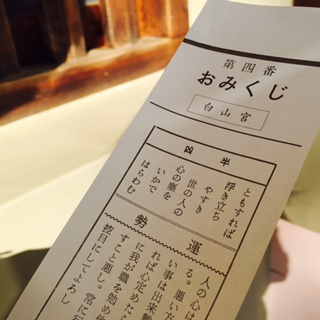 第四番
おみくじ
白山宮
半凶
ともすれば
浮き立ち
やすき
世の人の
心の塵を
いかで
はらわむ
運勢
人の心は
る。悪い
い事は出来
れば心定めた
に我が職を始め
すこと悪し。常に
控目にしてよろし